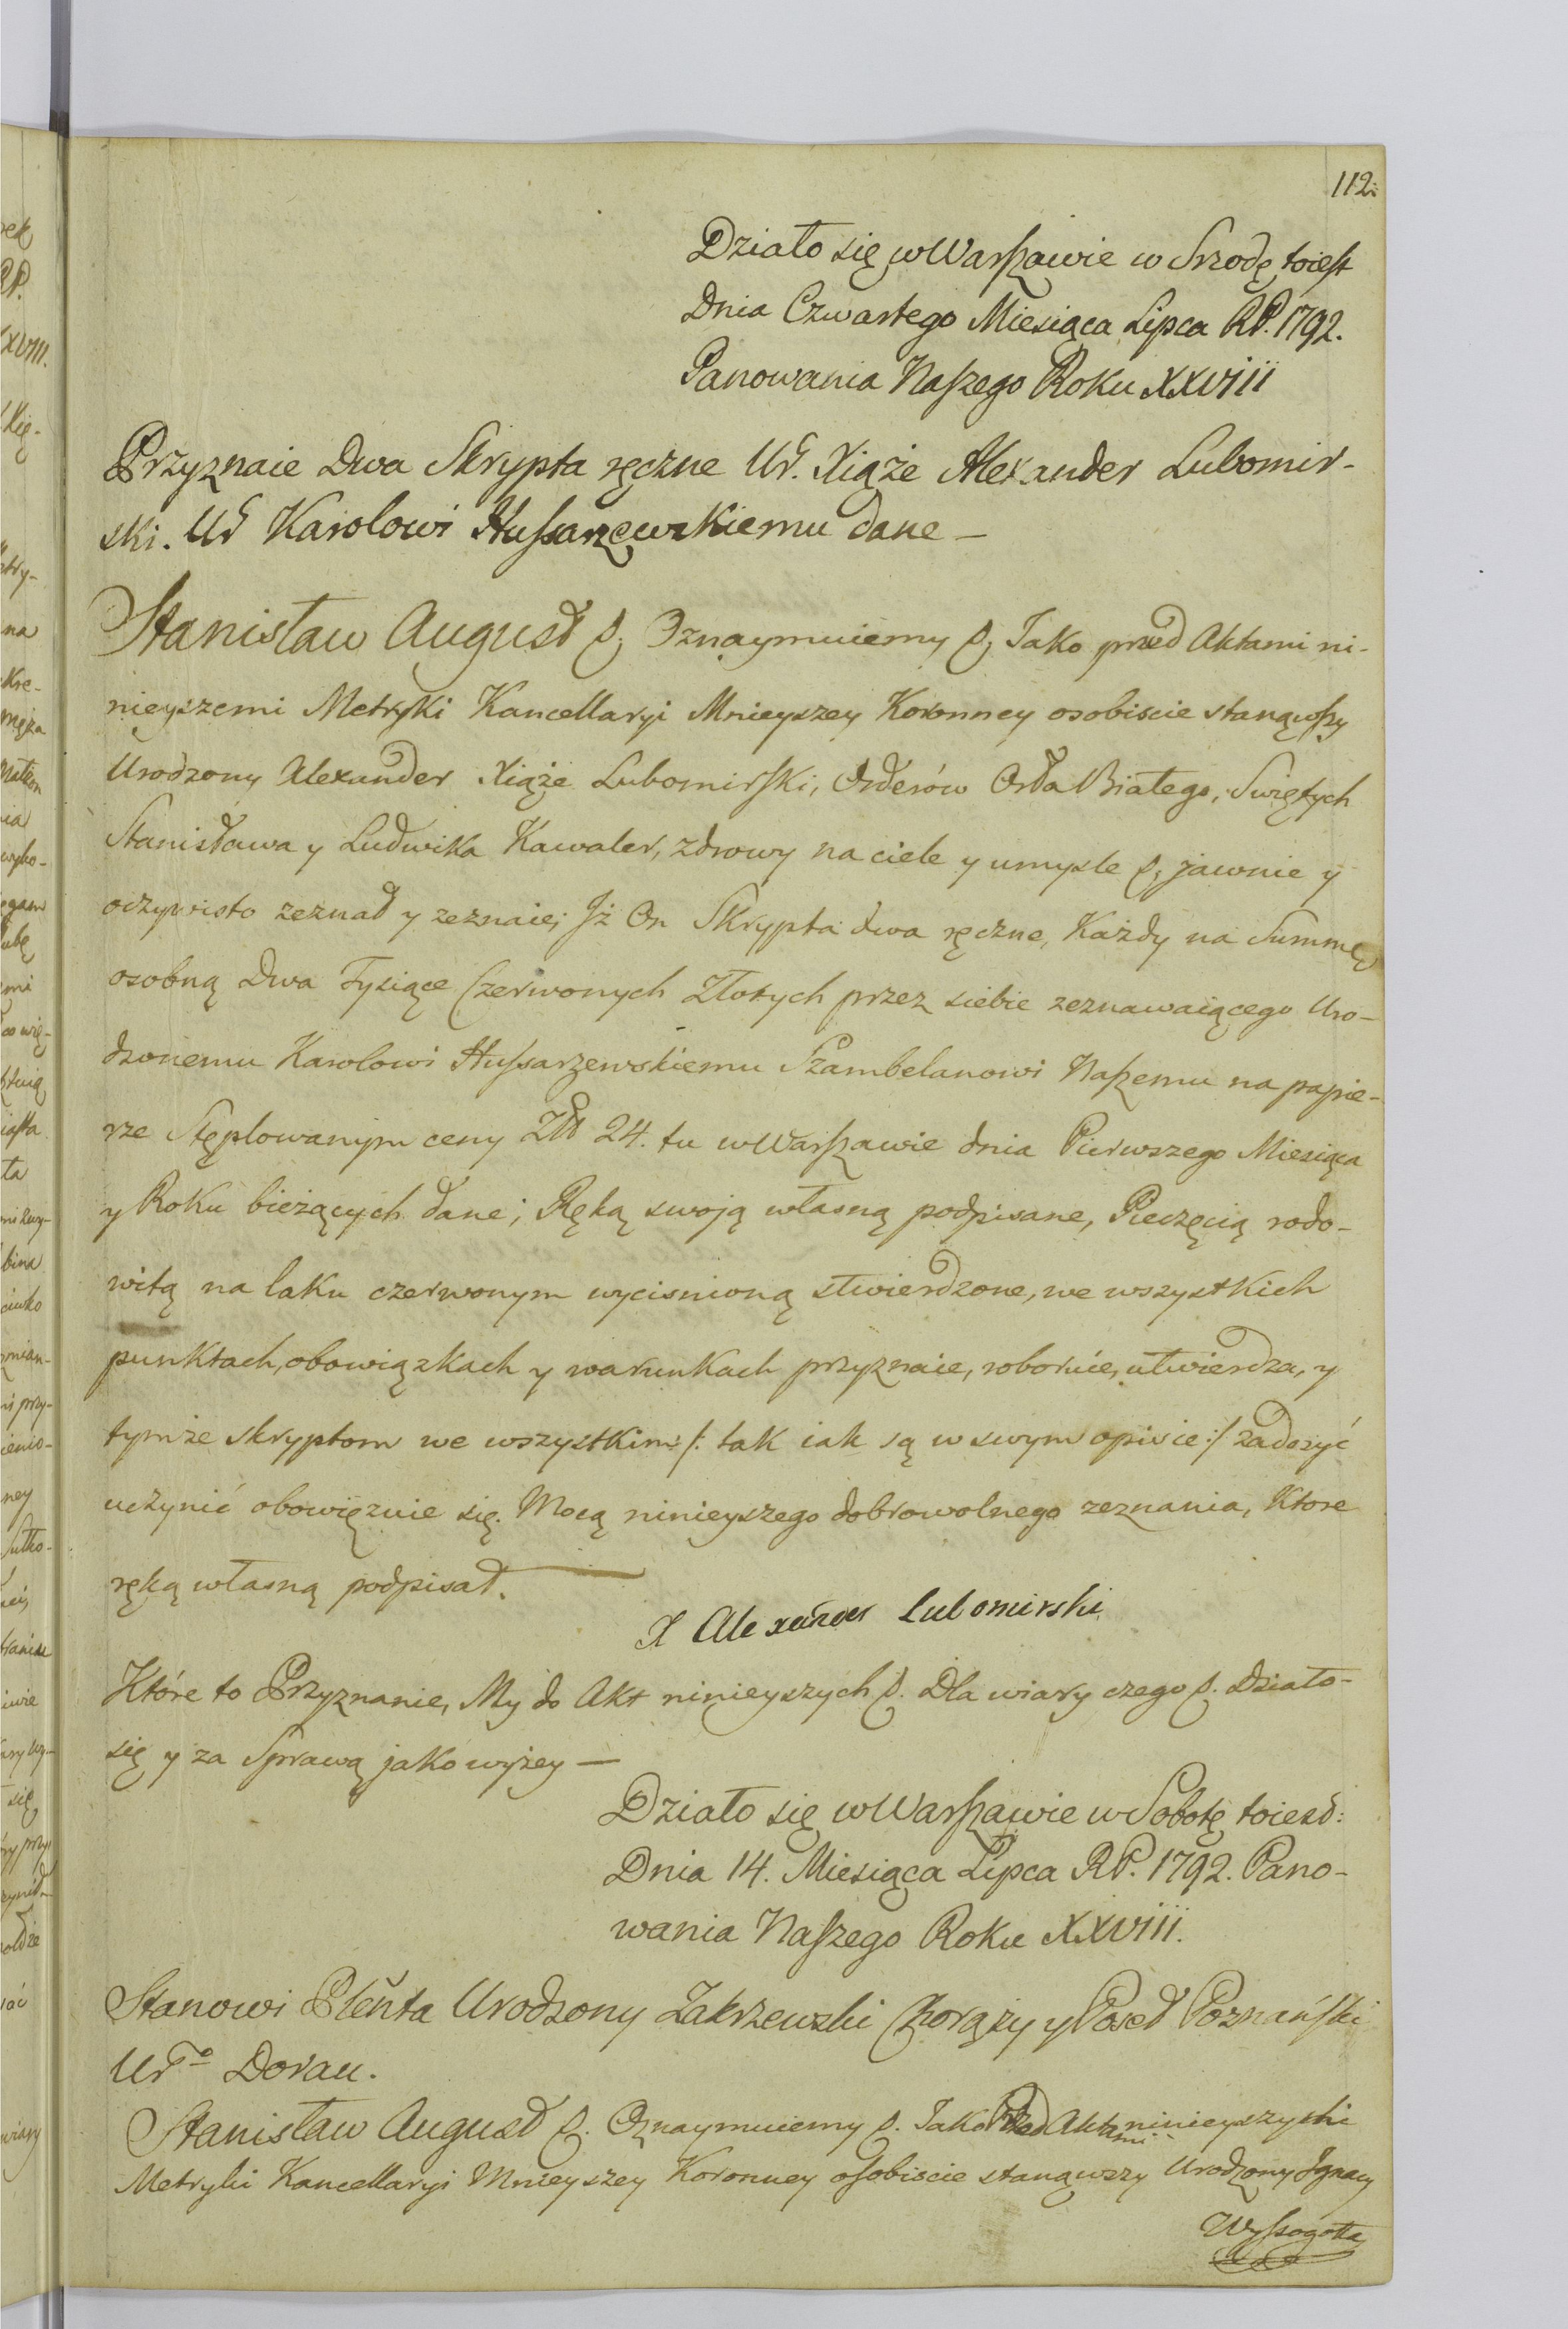 112.
Działo się w Warszawie w Srzodę toiest
Dnia Czwartego Miesiąca Lipca RP. 1792.
Panowania Naszego Roku XXVIII
Przyznaie Dwa Skrypta ręczne Ur. Xiąże Alexander Lubomir-
ski. Ur Karolowi Hussarzewskiemu dane —
Stanisław August p; Oznaymuiemy p; Jako przed Aktami ni-
nieyszemi Metryki Kancellaryi Mnieyszey Koronney osobiscie stanąwszy
Urodzony Alexander Xiąże Lubomirski, Orderów Orła Białego, Swiętych
Stanisława y Ludwika Kawaler, zdrowy na ciele y umysle p; jawnie y
oczywisto zeznał y zeznaie; Jż On Skrypta dwa ręczne, Każdy na Summę
osobną Dwa Tysiące Czerwonych Złotych przez siebie zeznawaiącego Uro-
dzonemu Karolowi Hussarzewskiemu Szambelanowi Naszemu na papie-
rze Stęplowanym ceny Złł 24. tu w Warszawie dnia Pierwszego Miesiąca
y Roku bieżących dane; Ręką swoją własną podpisane, Pieczęcią rodo-
witą na laku czerwonym wycisnioną stwierdzone, we wszystkich
punktach, obowiązkach y warunkach przyznaie, roboruie, utwierdza, y
tymże skryptom we wszystkim /: tak iak są w swym opisie :/ zadosyć
uczynić obowięzuie się. Mocą ninieyszego dobrowolnego zeznania, Ktore
ręką własną podpisał.
X Alexander Lubomirski
Które to Przyznanie, My do Akt ninieyszych p. Dla wiary czego p. Działo-
się y za Sprawą jako wyżey —
Działo się w Warszawie w Sobotę toiest:
Dnia 14. Miesiąca Lipca RP. 1792. Pano-
wania Naszego Roku XXVIII.
Stanowi Plenta Urodzony Zakrzewski Chorąży y Poseł Poznański
Uro Dorau.
Stanisław August p. Oznaymuiemy p. Jako Przed Aktami ninieyszymi
Metryki Kancellaryi Mnieyszey Koronney osobiscie stanąwszy Urodzony Jgnacy
Wyssogota